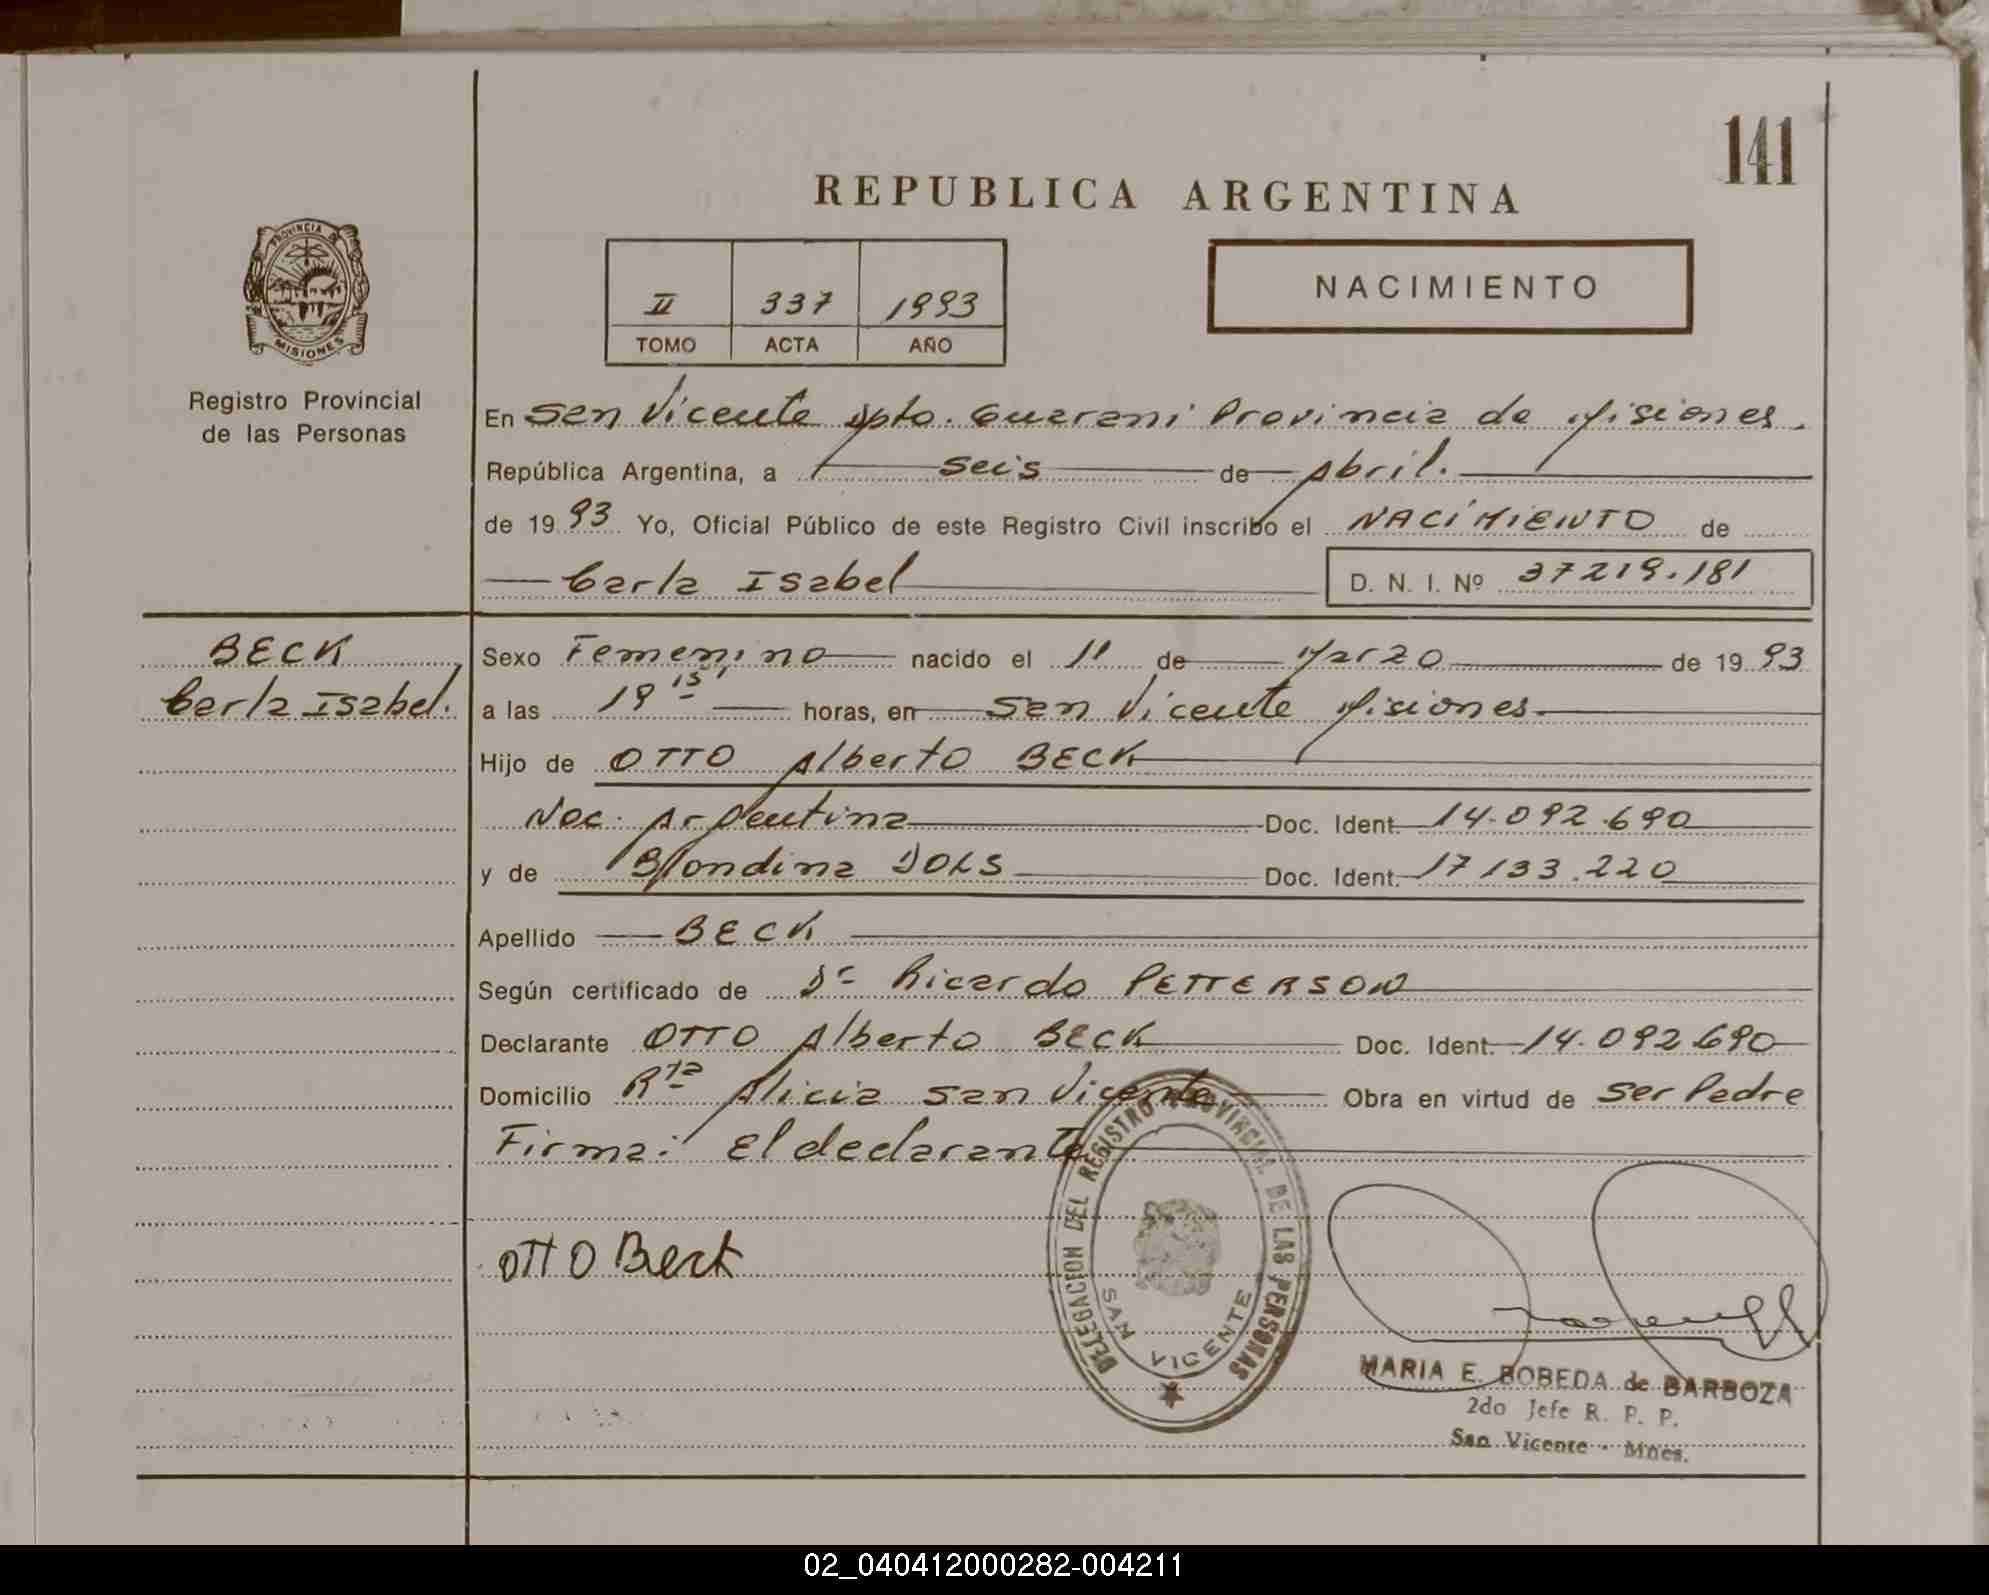 141
REPUBLICA ARGENTINA
PROVINCIA DE
MISIONES
Registro Provincial
de las Personas
II 337 1993
TOMO ACTA AÑO
NACIMIENTO
En San Vicente Dpto. Guarani Provincia de Misiones.
República Argentina, a seis de Abril.
de 1993 Yo, Oficial Público de este Registro Civil inscribo el NACIMIENTO de
Carla Isabel D. N. I. Nº 37219.181
BECK
Carla Isabel.
Sexo Femenino nacido el 11 de Marzo de 1993
a las 19 15' horas, en San Vicente Misiones.
Hijo de OTTO Alberto BECK
Nac. Argentina Doc. Ident. 14.092.690
y de Blondina DOLS Doc. Ident. 17133.220
Apellido BECK
Según certificado de Dr Ricardo PETTERSON
Declarante OTTO Alberto BECK Doc. Ident. 14.092690
Domicilio Rta Alicia San Vicente Obra en virtud de ser Padre
Firma: El declarante
OTTO Beck
DELEGACION DEL REGISTRO PROVINCIAL DE LAS PERSONAS
SAN VICENTE
MARIA E. BOBEDA de BARBOZA
2do Jefe R. P. P.
San Vicente - Mnes.
02_040412000282-004211